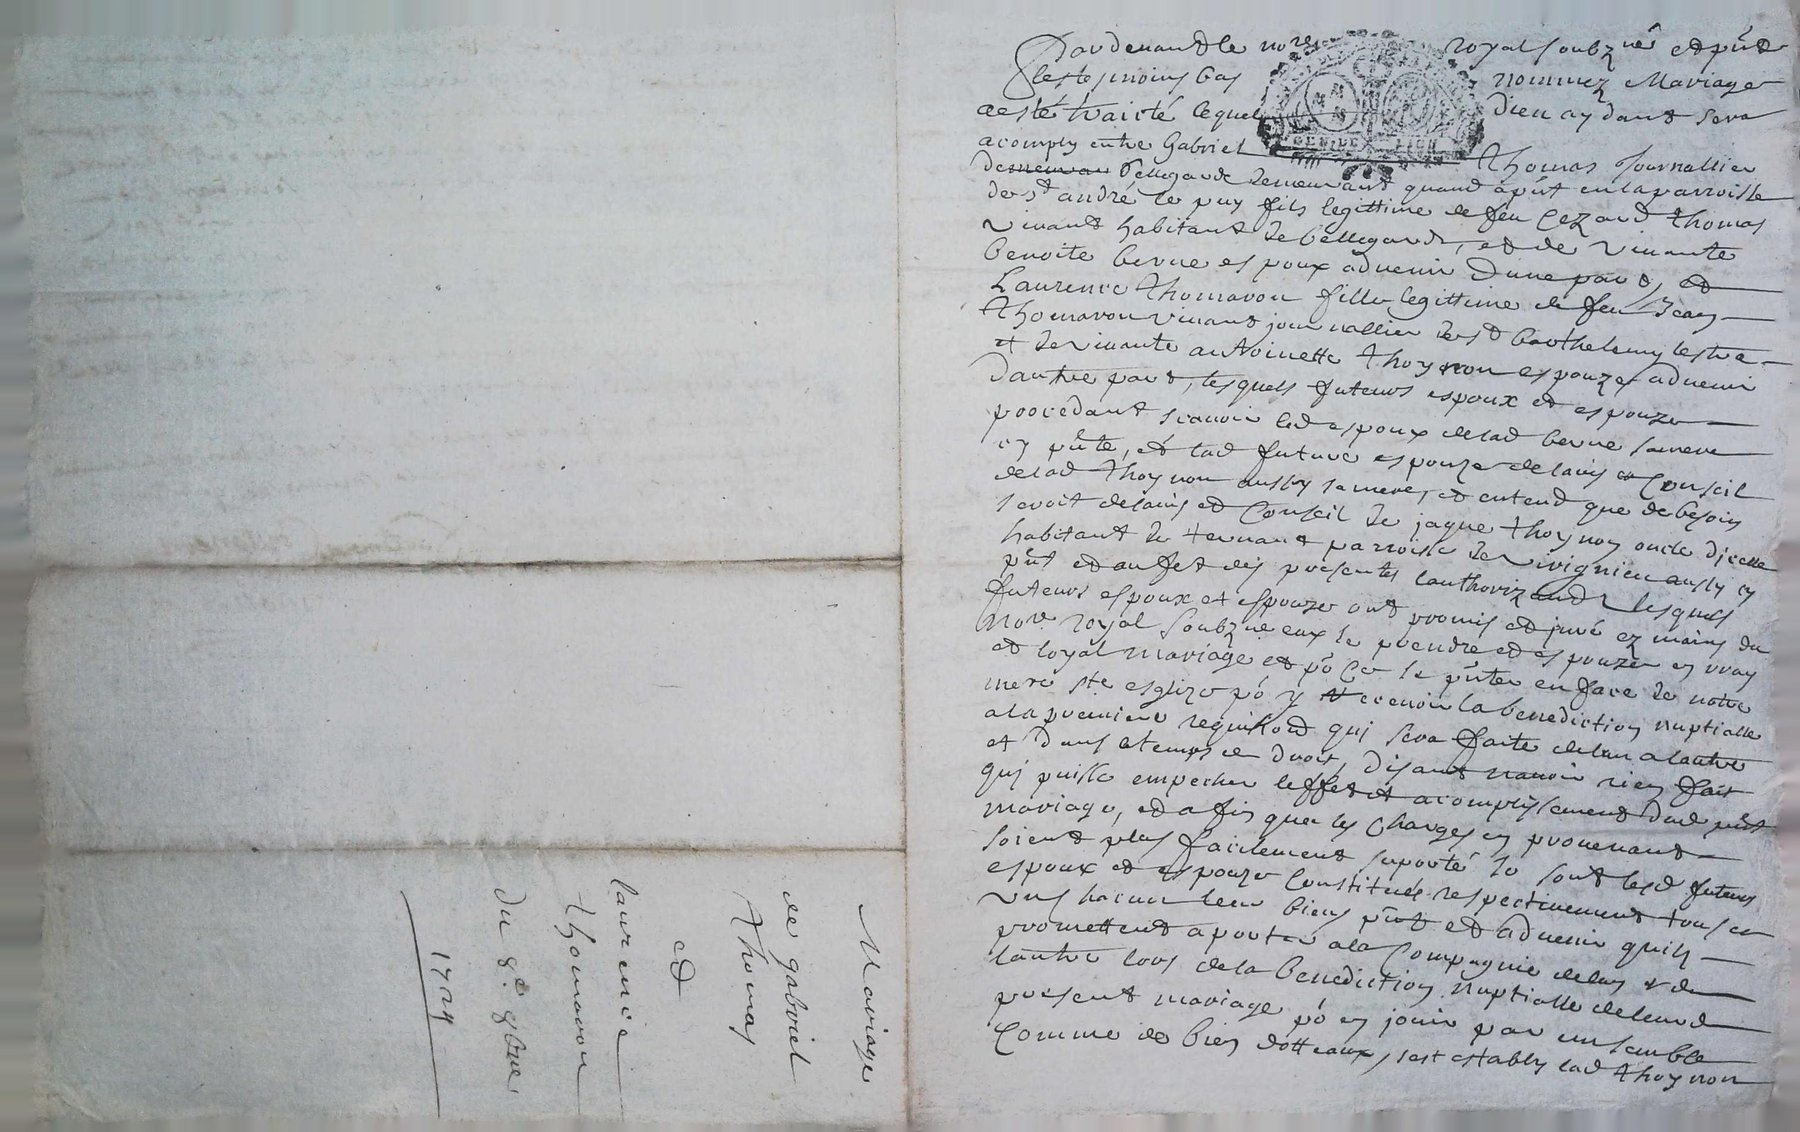 Pardevand le no.re royal soubz.né et p̃nt
les tesmoins bas nommez Mariage
a esté traicté lequel dieu aydant sera
acomply entre Gabriel Thomas Journallier
de Bellegarde demeurant quand a p̃nt en la parroisse
de st andré le puy fils legittime de feu Cezard Thomas
vivant habitant de bellegarde, et de vivante
benoite berne espoux advenir d'une part, et
Laurence Thomavon fille legittime de feu Jean
Thomavon vivant journallier de st barthelemy lestra
et de vivante antoinette Thoynon espouze advenir
dautre part, lesquels futeurs espoux et espouze
procedant scavoir led espoux de lad berne sa mere
cy p̃nte, et lad future espouze de lavis et Conseil
de lad Thoynon aussy sa mere, et entend que de besoin
seroit de lavis et Conseil de jaque Thoynon oncle dicelle
habitant de ternant parroisse de virignieu aussy cy
p̃nt et au fet des presentes lauthorizand lesquels
futeurs espoux et espouze ont promis et juré ez mains du
no.re royal soubz.né eux se prendre et espouzer en vray
et loyal mariage et po Ce se p̃nter en face de notre
mere ste esglize po y recevoir la benediction nuptialle
a la premiere requi. quj sera faite de lun a lautre
et dans le temps de droit, disant navoir rien fait
quj puisse empecher leffet et acomplissement dud p̃nt
mariage, et afin que les charges en provenant
soient plus facilement suporté se sont lesd futeurs
espoux et espouze Constitués respectivement tous et
uns chacun leur biens p̃nt et advenir quils
promettent aporter a la Compagnie de lun et de
lautre lors de la benediction nuptialle de leurd
present mariage po en jouir par ensemble
Comme de bien dotteaux, sest estably lad Thoynon
Mariage
de gabriel
Thomas
et
laurence
Thomavon
du 8e 9bre
1724